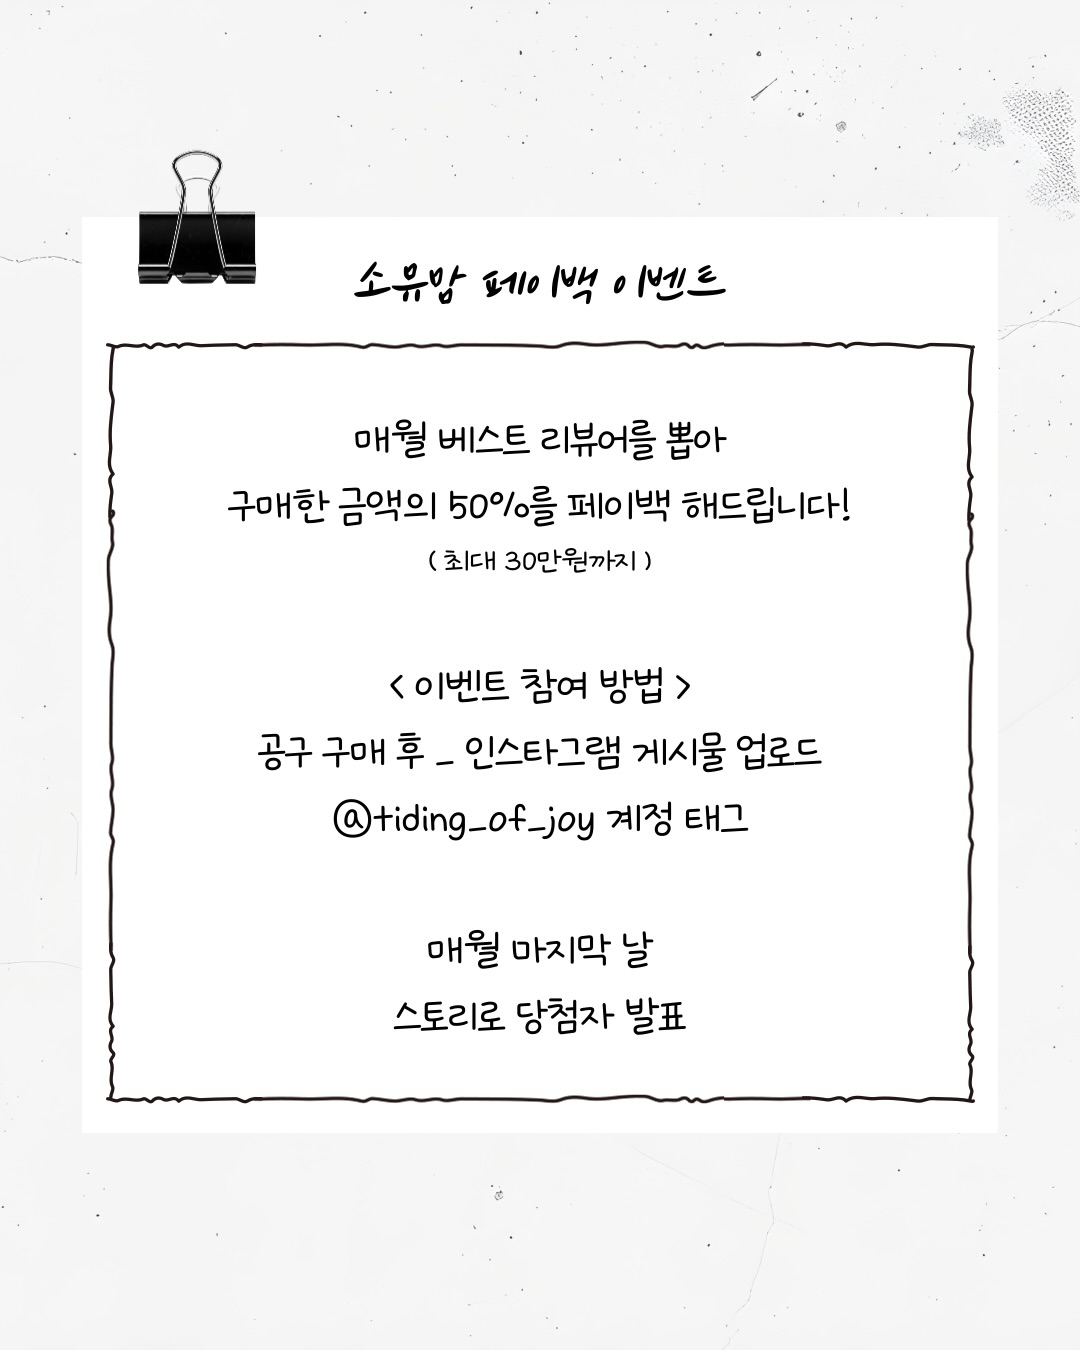 소유맘 페이백 이벤트
매월 베스트 리뷰어를 뽑아
구매한 금액의 50%를 페이백 해드립니다!
( 최대 30만원까지 )
< 이벤트 참여 방법 >
공구 구매 후 _ 인스타그램 게시물 업로드
@tiding_of_joy 계정 태그
매월 마지막 날
스토리로 당첨자 발표